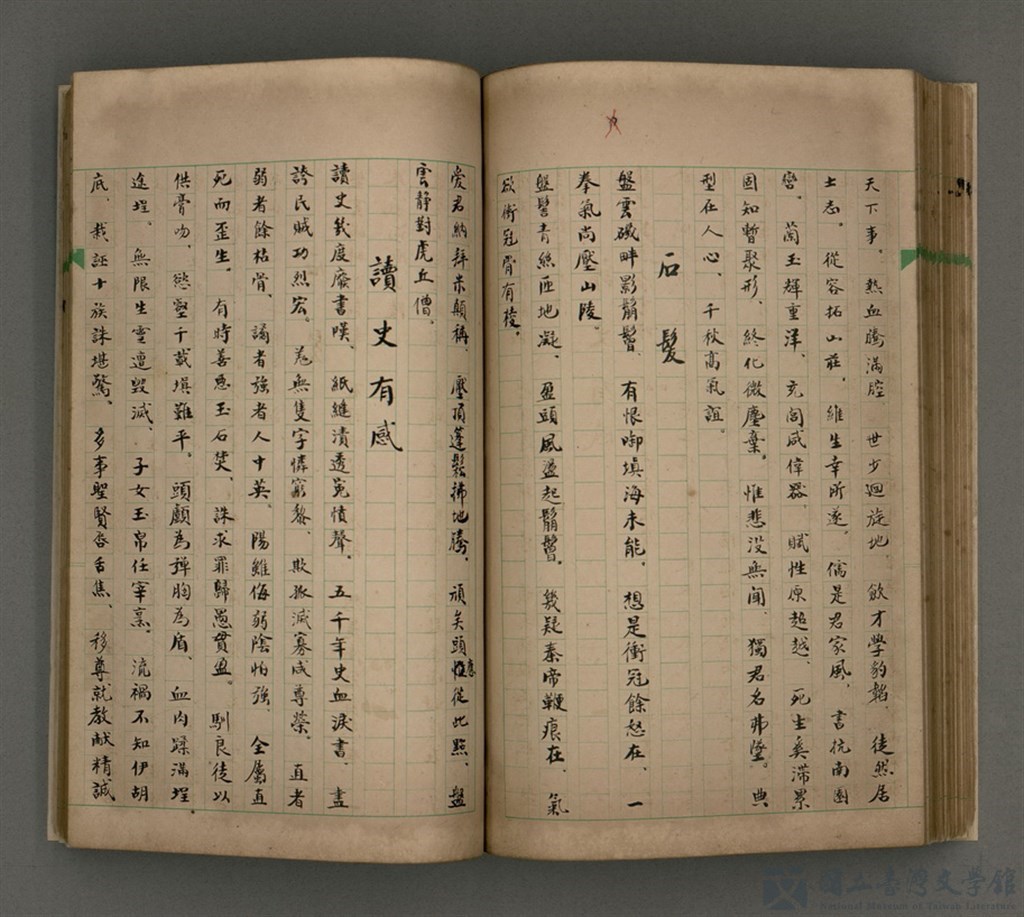 天下事。熱血騰滿腔　世步迴旋地。飲才學豹韜、徒然居
士志。從容拓山莊，維生幸所遂。儒是君家風，書抗南園
幟。蘭玉輝重洋、充閭咸偉器。賦性原超越、死生奚滯累
固知暫聚形、終化微塵棄。惟悲沒無聞、獨君名弗墮。典
型在人心、千秋高氣誼。
石髮
盤雲磯畔影鬅鬙、有恨啣填海未能。想是衝冠餘怒在、一
拳氣尚壓山陵。
盤髻青絲匝地凝、盈頭風盪起鬅鬙。幾疑秦帝鞭痕在、氣
欲衝冠骨有稜。
愛君納拜米顛稱、壓頂蓬鬆拂地勝。頑矣頭應從此點、盤
雲靜對虎丘僧。
讀史有感
讀史幾度廢書嘆、紙縫漬透冤憤聲。五千年史血淚書、盡
誇民賊功烈宏。羌無隻字憐窮黎、欺孤滅寡成尊榮。直者
弱者餘枯骨、謁者強者人中英。陽雖侮弱陰怕強、全屬直
死而歪生。有時善惡玉石焚、誅求罪歸愚貫盈。馴良徒以
供膏吻、慾壑千載填難平。頭顱為彈胸為盾、血肉蹂滿埕。
無限生靈遭毀滅、子女玉帛任宰烹。流禍不知伊胡
底、裁誣十族誅堪驚、多事聖賢唇舌焦、移尊就教献精誠
國立臺灣文學館
National Museum of Taiwan Literature